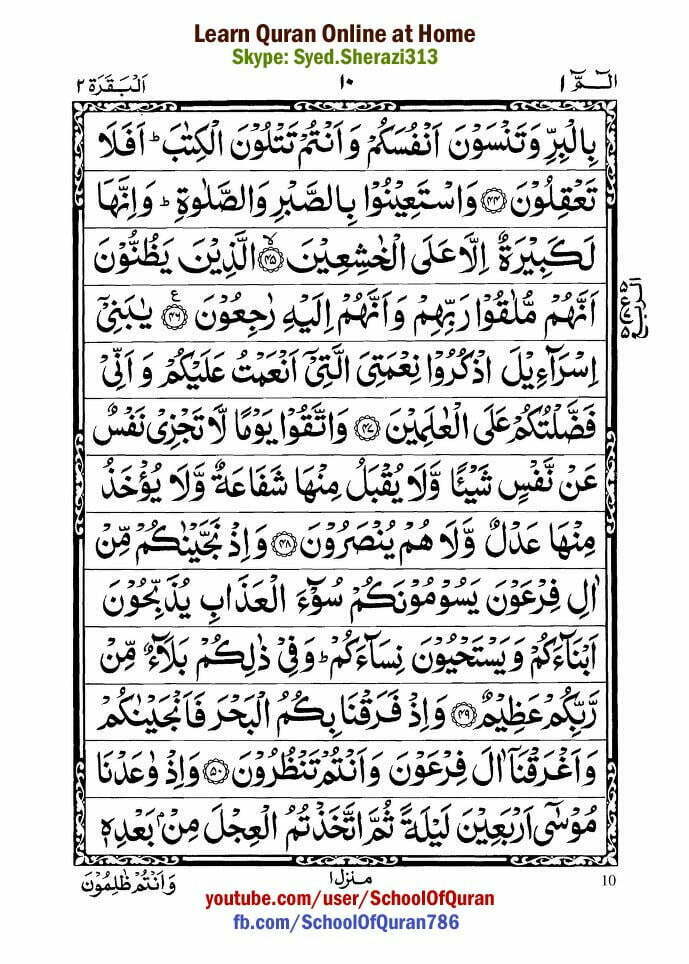 Learn Quran Online at Home
Skype: Syed.Sherazi313
الٓـمّٓ ١ ١٠ اَلْبَقَرَة ٢
بِالْبِرِّ وَتَنْسَوْنَ اَنْفُسَكُمْ وَاَنْتُمْ تَتْلُوْنَ الْكِتٰبَ ؕ اَفَلَا
تَعْقِلُوْنَ ﴿۴۴﴾ وَاسْتَعِيْنُوْا بِالصَّبْرِ وَالصَّلٰوةِ ؕ وَاِنَّهَا
لَكَبِيْرَةٌ اِلَّا عَلَى الْخٰشِعِيْنَ ۙ﴿۴۵﴾ الَّذِيْنَ يَظُنُّوْنَ
اَنَّهُمْ مُّلٰقُوْا رَبِّهِمْ وَاَنَّهُمْ اِلَيْهِ رٰجِعُوْنَ ﴿۴۶﴾ ع يٰبَنِيْٓ
الربع
اِسْرَآءِيْلَ اذْكُرُوْا نِعْمَتِيَ الَّتِيْٓ اَنْعَمْتُ عَلَيْكُمْ وَاَنِّيْ
فَضَّلْتُكُمْ عَلَى الْعٰلَمِيْنَ ﴿۴۷﴾ وَاتَّقُوْا يَوْمًا لَّا تَجْزِيْ نَفْسٌ
عَنْ نَّفْسٍ شَيْـًٔا وَّلَا يُقْبَلُ مِنْهَا شَفَاعَةٌ وَّلَا يُؤْخَذُ
مِنْهَا عَدْلٌ وَّلَا هُمْ يُنْصَرُوْنَ ﴿۴۸﴾ وَاِذْ نَجَّيْنٰكُمْ مِّنْ
اٰلِ فِرْعَوْنَ يَسُوْمُوْنَكُمْ سُوْٓءَ الْعَذَابِ يُذَبِّحُوْنَ
اَبْنَآءَكُمْ وَيَسْتَحْيُوْنَ نِسَآءَكُمْ ؕ وَفِيْ ذٰلِكُمْ بَلَآءٌ مِّنْ
رَّبِّكُمْ عَظِيْمٌ ﴿۴۹﴾ وَاِذْ فَرَقْنَا بِكُمُ الْبَحْرَ فَاَنْجَيْنٰكُمْ
وَاَغْرَقْنَآ اٰلَ فِرْعَوْنَ وَاَنْتُمْ تَنْظُرُوْنَ ﴿۵۰﴾ وَاِذْ وٰعَدْنَا
مُوْسٰٓى اَرْبَعِيْنَ لَيْلَةً ثُمَّ اتَّخَذْتُمُ الْعِجْلَ مِنْۢ بَعْدِهٖ
10 منزل ١ وَاَنْتُمْ ظٰلِمُوْنَ
youtube.com/user/SchoolOfQuran
fb.com/SchoolOfQuran786